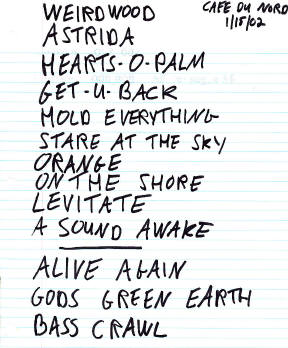 WEIRDWOOD
CAFE DU NORD
1/15/02
ASTRIDA
HEARTS-O-PALM
GET-U-BACK
MOLD EVERYTHING
STARE AT THE SKY
ORANGE
ON THE SHORE
LEVITATE
A SOUND AWAKE
ALIVE AGAIN
GODS GREEN EARTH
BASS CRAWL